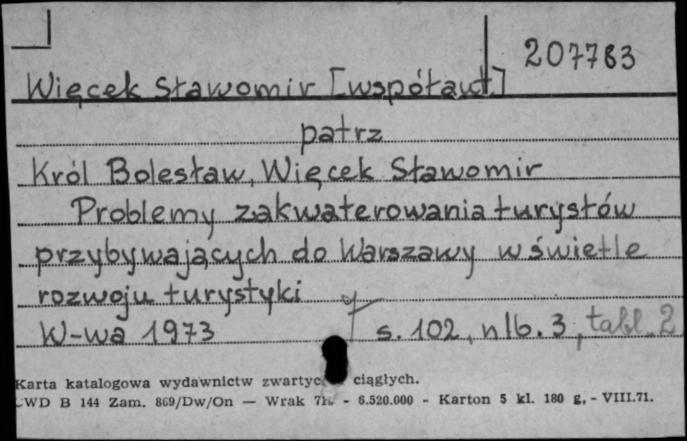 207783
Więcek Sławomir [współaut.]
patrz
Król Bolesław, Więcek Sławomir
Problemy zakwaterowania turystów
przybywających do Warszawy w świetle
rozwoju turystyki
W-wa 1973 s. 102, nlb. 3, tabl. 2
Karta katalogowa wydawnictw zwartyc ciągłych.
WD B 144 Zam. 869/Dw/On — Wrak 71. - 6.520.000 - Karton 5 kl. 180 g. - VIII.71.